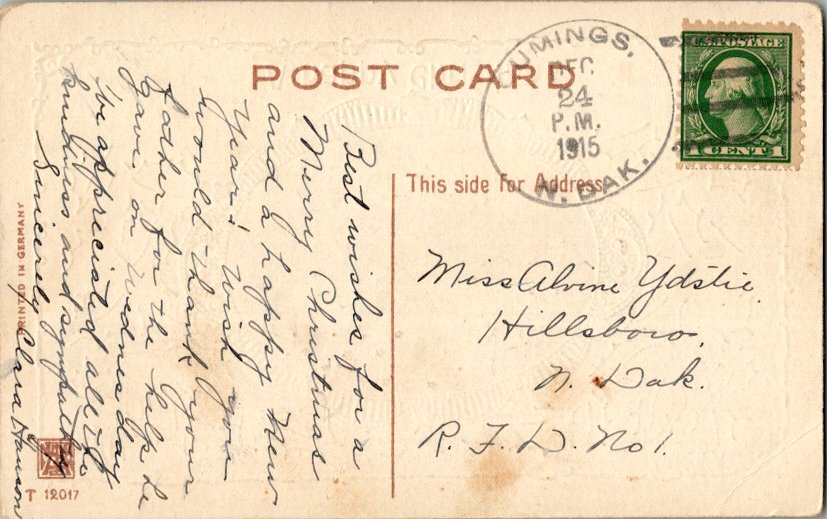 POST CARD
UMINGS,
DEC
24
P.M.
1915
N. DAK.
U.S. POSTAGE
1 CENT 1
This side for Address
Best wishes for a
Merry Christmas
and a happy New
Year. Wish you
would thank your
father for the help he
gave, on Wednesday
We appreciated all the
kindness and sympathy
Sincerely Clara Hanson
Miss Alvine Ydstie.
Hillsboro,
N. Dak.
R. F. D. No 1.
PRINTED IN GERMANY
T 12017